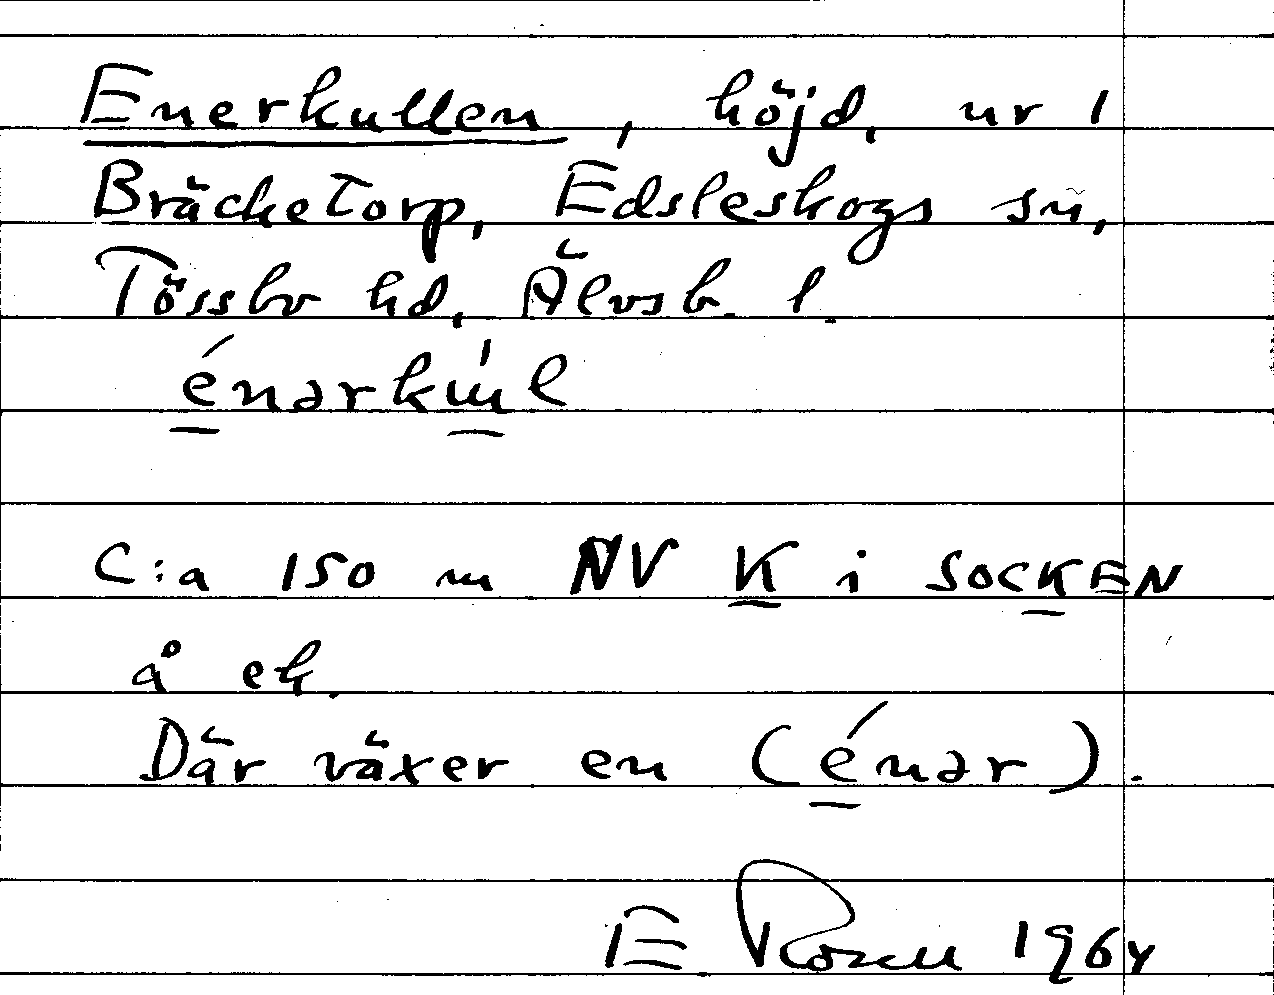 Enerkullen, höjd, nr 1
Bräcketorp, Edsleskogs sn,
Tössbo hd, Älvsb. l.
énərkúl
C:a 150 m NV K i SOCKEN
å ek.
Där växer en (énər).
E Rosell 1964